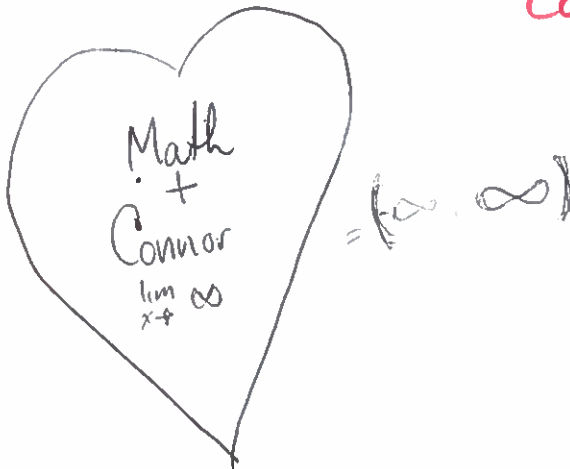 Math
+
Connor
lim ∞
x→
= (-∞, ∞)